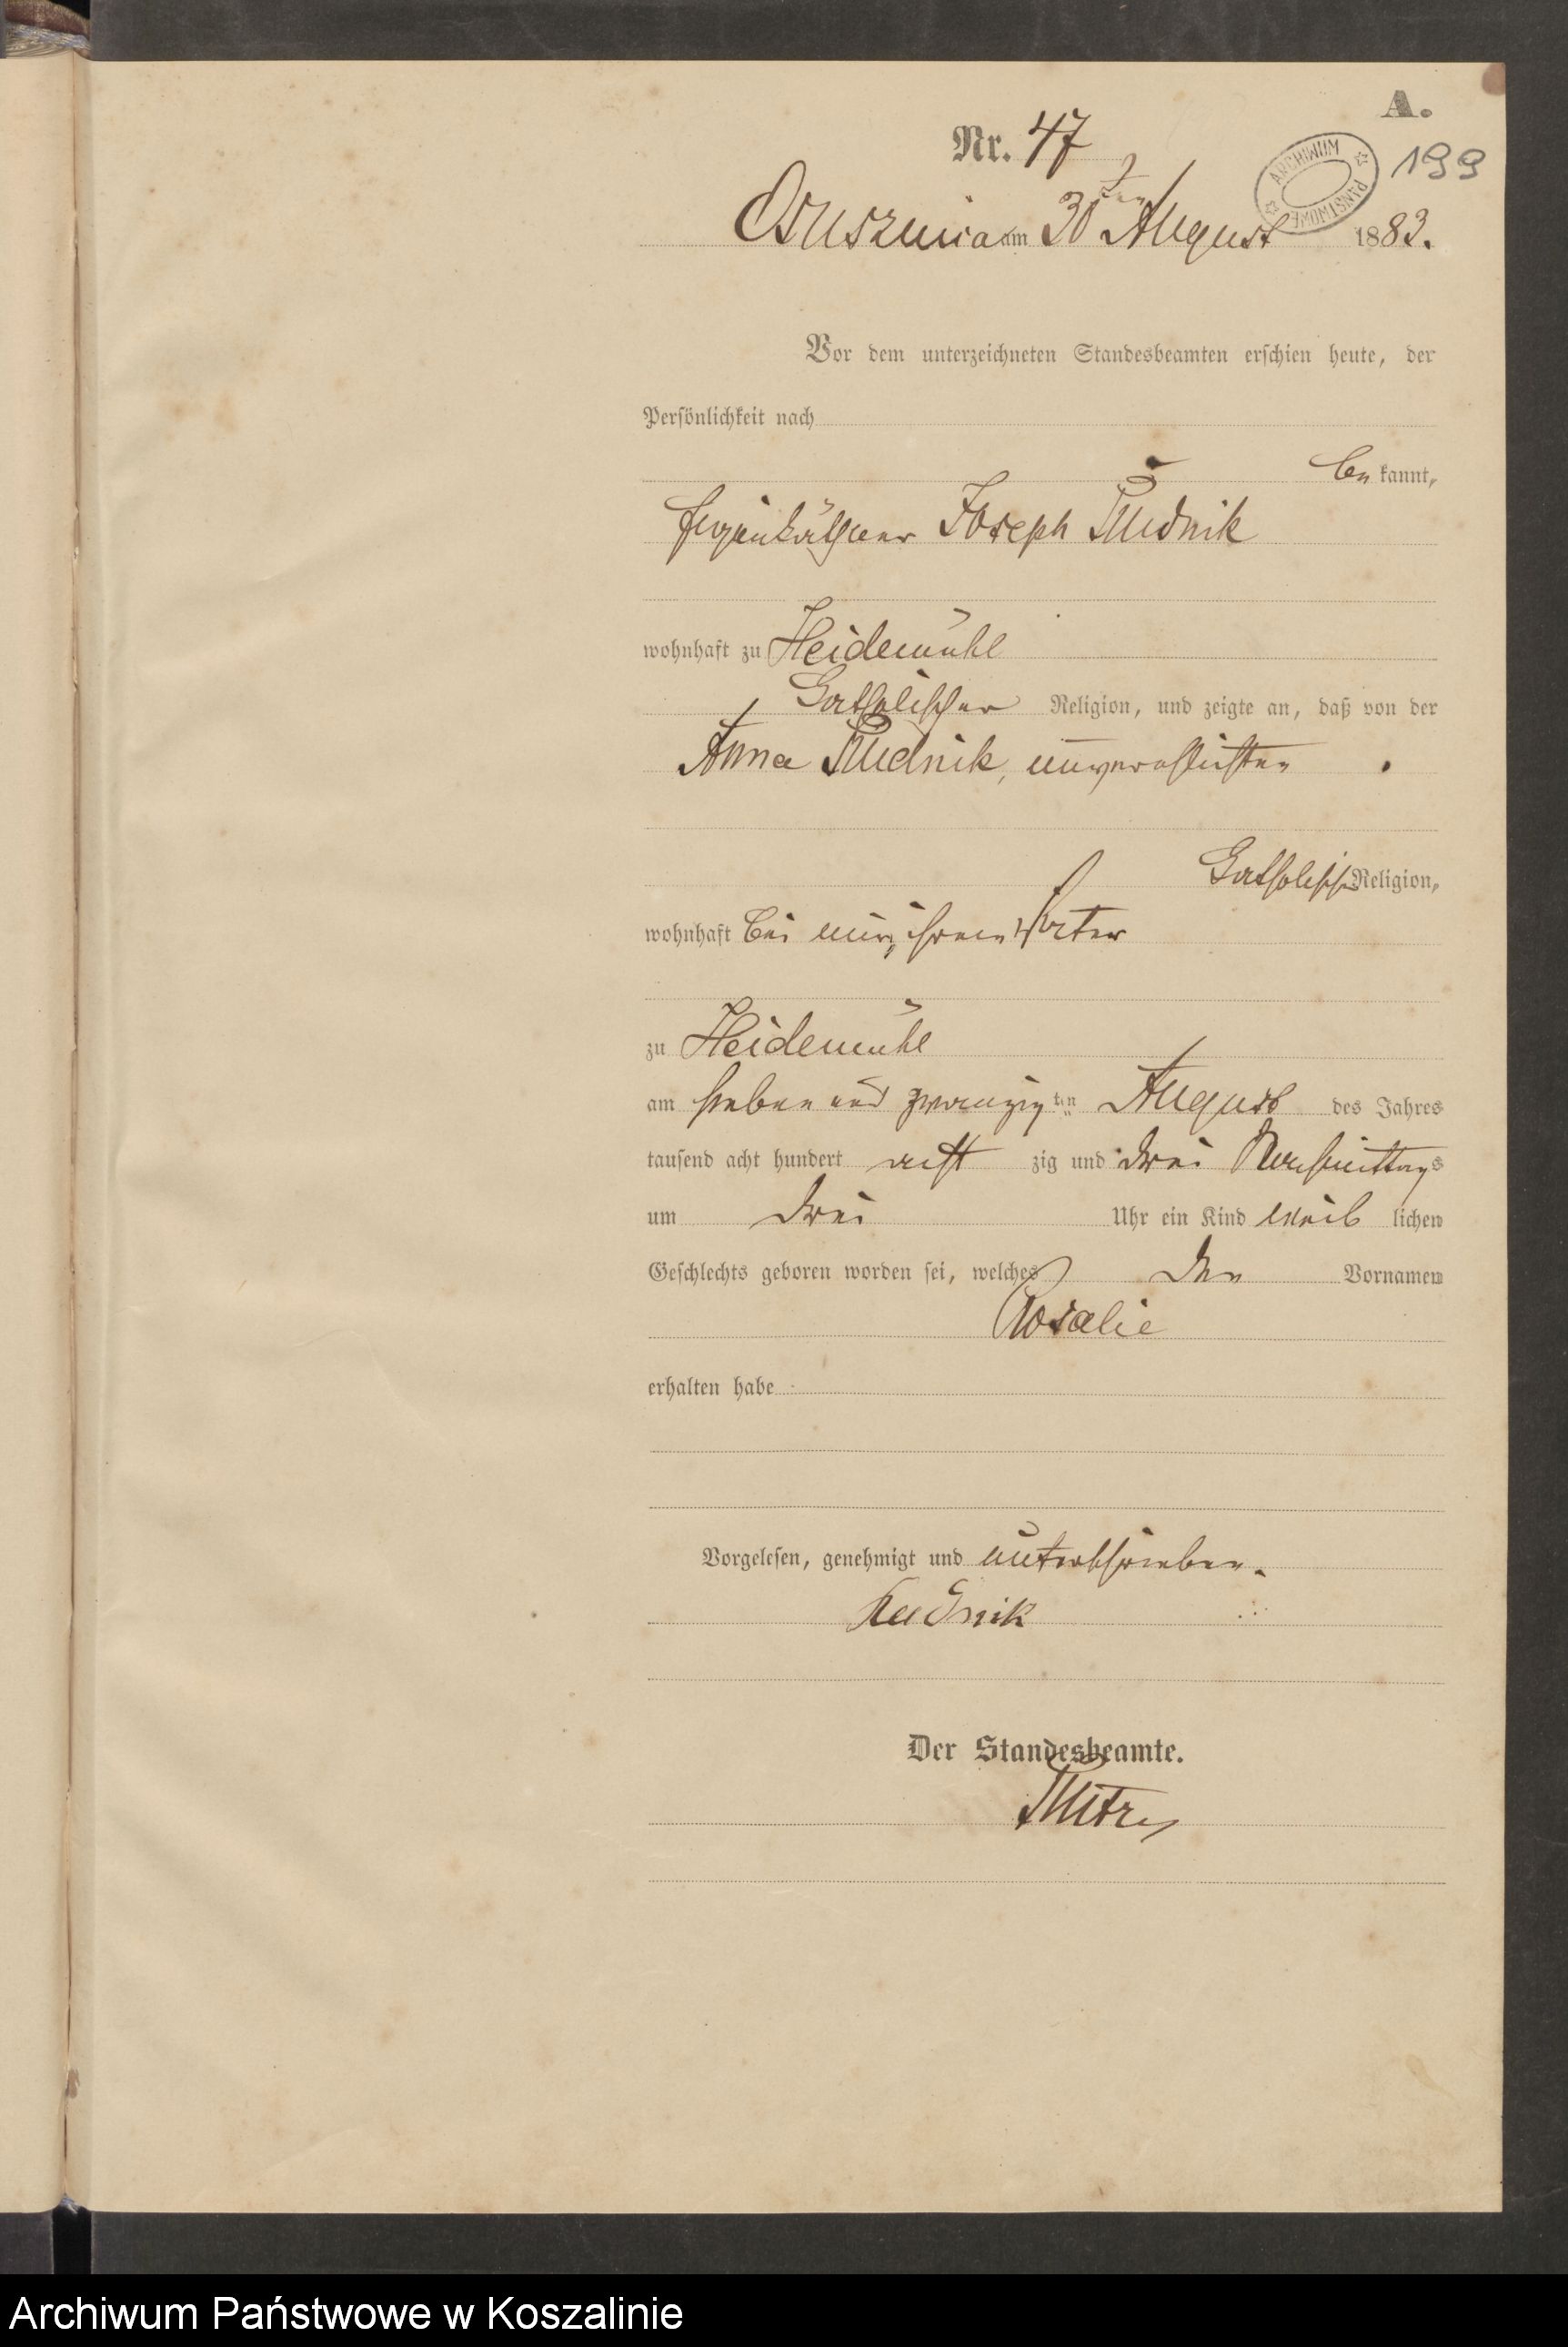 A.
Nr. 47
ARCHIWUM PAŃSTWOWE
199
Ossuszniza am 30ten August 1883.
Vor dem unterzeichneten Standesbeamten erschien heute, der
Persönlichkeit nach
be kannt,
Eigenkäthner Joseph Rudnik
wohnhaft zu Heidemühl
Catholischer Religion, und zeigte an, daß von der
Anna Rudnik, unverehlichten
Catholisch Religion,
wohnhaft bei mir, ihrem Vater
zu Heidemühl
am sieben und zwanzigten August des Jahres
tausend acht hundert acht zig und drei Nachmittags
um drei Uhr ein Kind weib lichen
Geschlechts geboren worden sei, welches den Vornamen
Rosalie
erhalten habe
Vorgelesen, genehmigt und unterschrieben.
Rudnik
Der Standesbeamte.
Archiwum Państwowe w Koszalinie